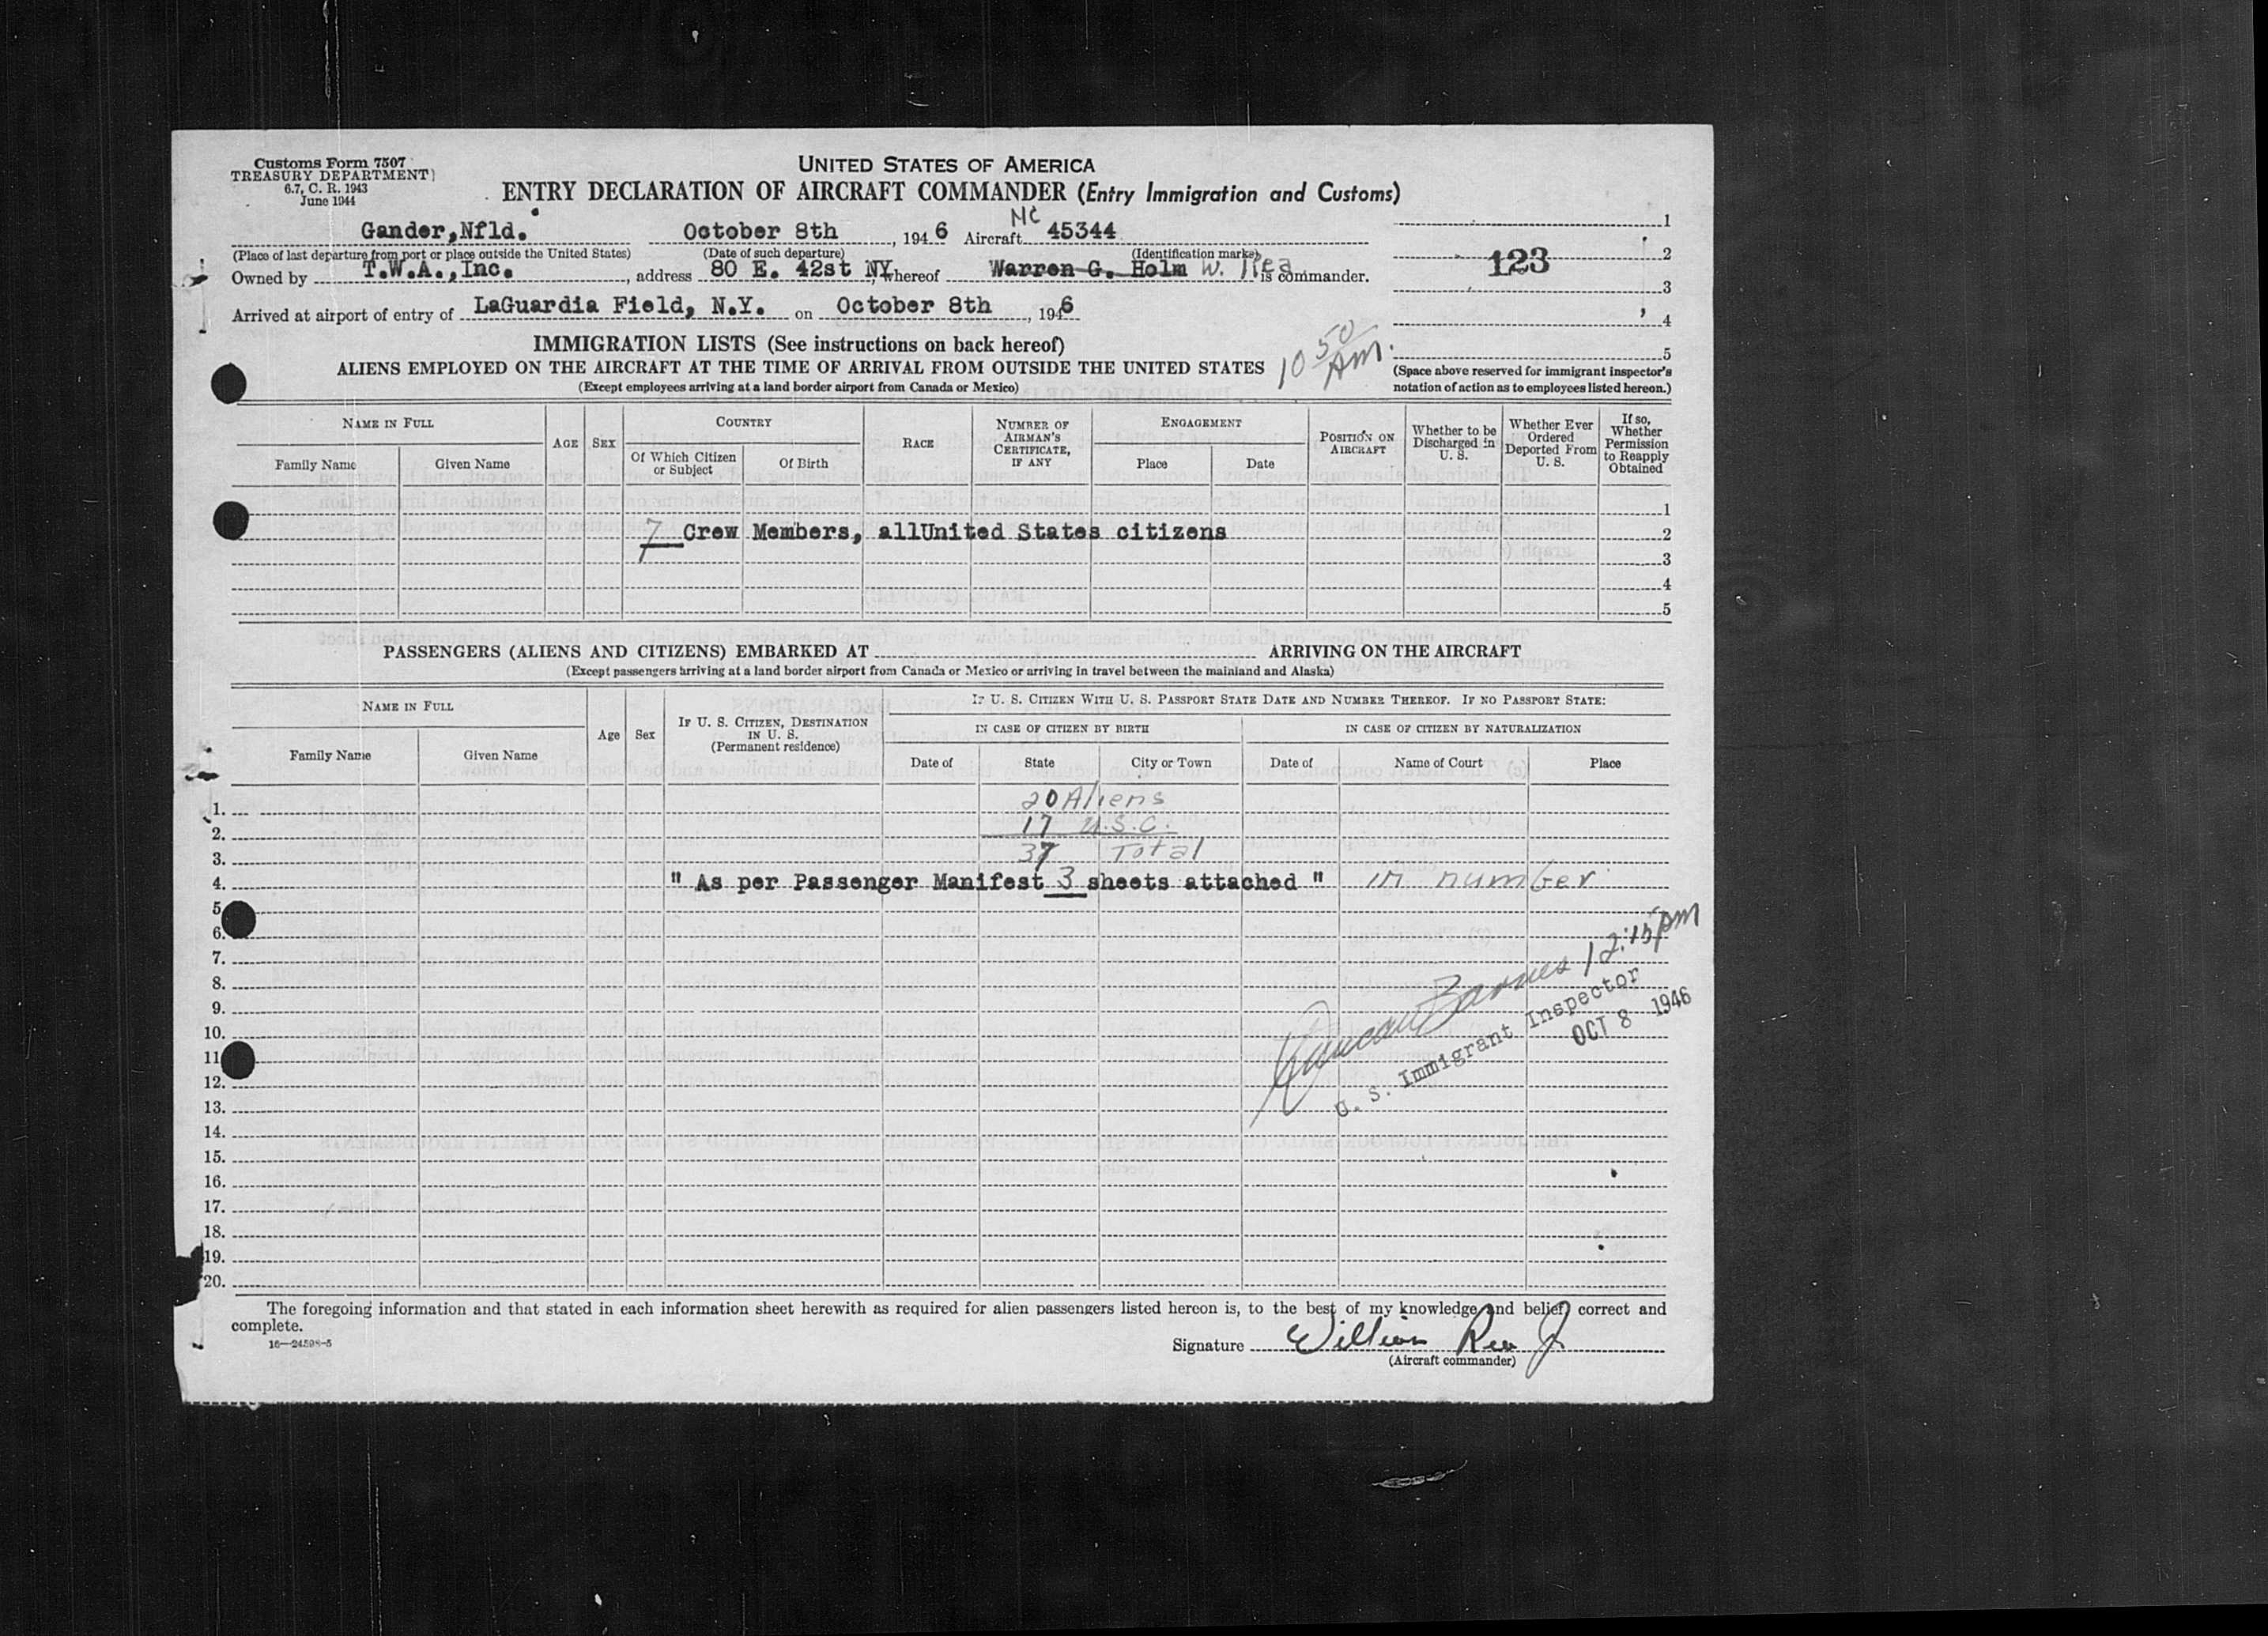 Customs Form 7507
TREASURY DEPARTMENT
6.7, C. R. 1943
June 1944
UNITED STATES OF AMERICA
ENTRY DECLARATION OF AIRCRAFT COMMANDER (Entry Immigration and Customs)
Gander,Nfld. October 8th, 1946 Aircraft NC 45344
(Place of last departure from port or place outside the United States) (Date of such departure) (Identification marks)
Owned by T.W.A.,Inc., address 80 E. 42st NY, whereof Warren G. Holm W. Rea is commander.
Arrived at airport of entry of LaGuardia Field, N.Y. on October 8th, 1946
1
2
123
3
4
5
(Space above reserved for immigrant inspector's
notation of action as to employees listed hereon.)
IMMIGRATION LISTS (See instructions on back hereof)
ALIENS EMPLOYED ON THE AIRCRAFT AT THE TIME OF ARRIVAL FROM OUTSIDE THE UNITED STATES
10 50 Am.
(Except employees arriving at a land border airport from Canada or Mexico)
NAME IN FULL
Family Name Given Name
AGE SEX
COUNTRY
Of Which Citizen or Subject Of Birth
RACE
NUMBER OF AIRMAN'S CERTIFICATE, IF ANY
ENGAGEMENT
Place Date
POSITION ON AIRCRAFT
Whether to be Discharged in U. S.
Whether Ever Ordered Deported From U. S.
If so, Whether Permission to Reapply Obtained
1
7 Crew Members, allUnited States citizens 2
3
4
5
PASSENGERS (ALIENS AND CITIZENS) EMBARKED AT ARRIVING ON THE AIRCRAFT
(Except passengers arriving at a land border airport from Canada or Mexico or arriving in travel between the mainland and Alaska)
NAME IN FULL
Family Name Given Name
Age Sex
IF U. S. CITIZEN, DESTINATION IN U. S.
(Permanent residence)
IF U. S. CITIZEN WITH U. S. PASSPORT STATE DATE AND NUMBER THEREOF. IF NO PASSPORT STATE:
IN CASE OF CITIZEN BY BIRTH IN CASE OF CITIZEN BY NATURALIZATION
Date of State City or Town Date of Name of Court Place
1. 20 Aliens
2. 17 U.S.C.
3. 37 Total
4. " As per Passenger Manifest 3 sheets attached " in number
5.
6.
7.
8.
9.
10.
11
12.
13.
14.
15.
16.
17.
18.
19.
20.
Duncan Barnes 12:15 pm
U. S. Immigrant Inspector
OCT 8 1946
The foregoing information and that stated in each information sheet herewith as required for alien passengers listed hereon is, to the best of my knowledge and belief, correct and
complete.
16—24598-5
Signature William Rea Jr
(Aircraft commander)